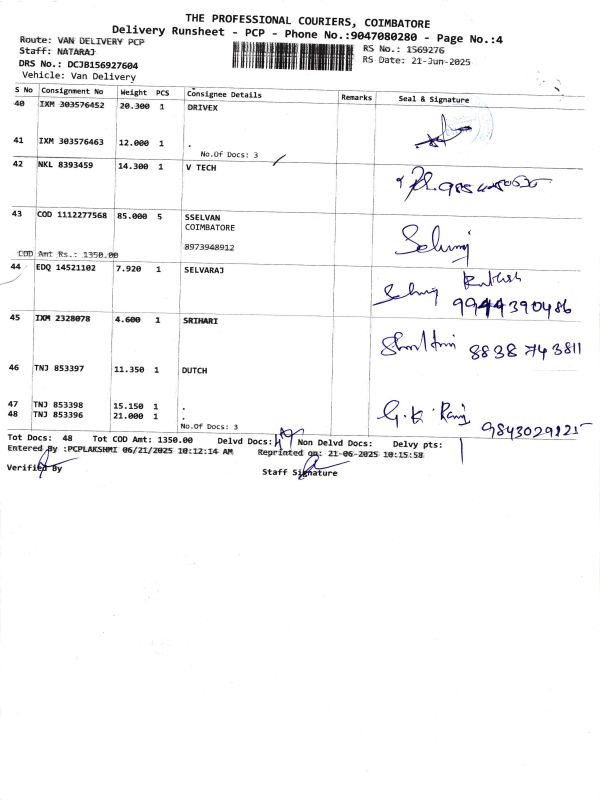 THE PROFESSIONAL COURIERS, COIMBATORE
Delivery Runsheet - PCP - Phone No.:9047080280 - Page No.:4
Route: VAN DELIVERY PCP
RS No.: 1569276
Staff: NATARAJ
RS Date: 21-Jun-2025
DRS No.: DCJB156927604
Vehicle: Van Delivery
S No Consignment No Weight PCS Consignee Details Remarks Seal & Signature
40 IXM 303576452 20.300 1 DRIVEX
41 IXM 303576463 12.000 1 .
No.Of Docs: 3
42 NKL 8393459 14.300 1 V TECH
43 COD 1112277568 85.000 5 SSELVAN
COIMBATORE
8973948912
COD Amt Rs.: 1350.00
44 EDQ 14521102 7.920 1 SELVARAJ
9944390486
45 IXM 2328078 4.600 1 SRIHARI
8838 743811
46 TNJ 853397 11.350 1 DUTCH
47 TNJ 853398 15.150 1 .
48 TNJ 853396 21.000 1 .
No.Of Docs: 3
9843029125
Tot Docs: 48 Tot COD Amt: 1350.00 Delvd Docs: Non Delvd Docs: Delvy pts:
Entered By :PCPLAKSHMI 06/21/2025 10:12:14 AM Reprinted on: 21-06-2025 10:15:58
Verified By
Staff Signature